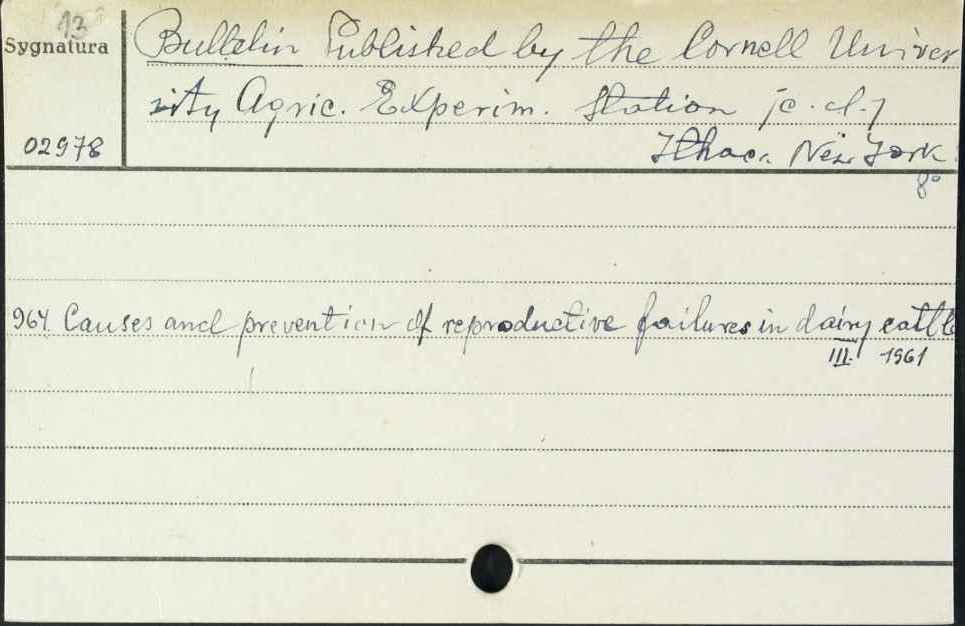 13
Sygnatura
02978
Bulletin Published by the Cornell Univer
sity Agric. Experim. Station /c.d./
Ithaca. New York
8°
964. Causes and prevention of reproductive failures in dairy cattle
III. 1961